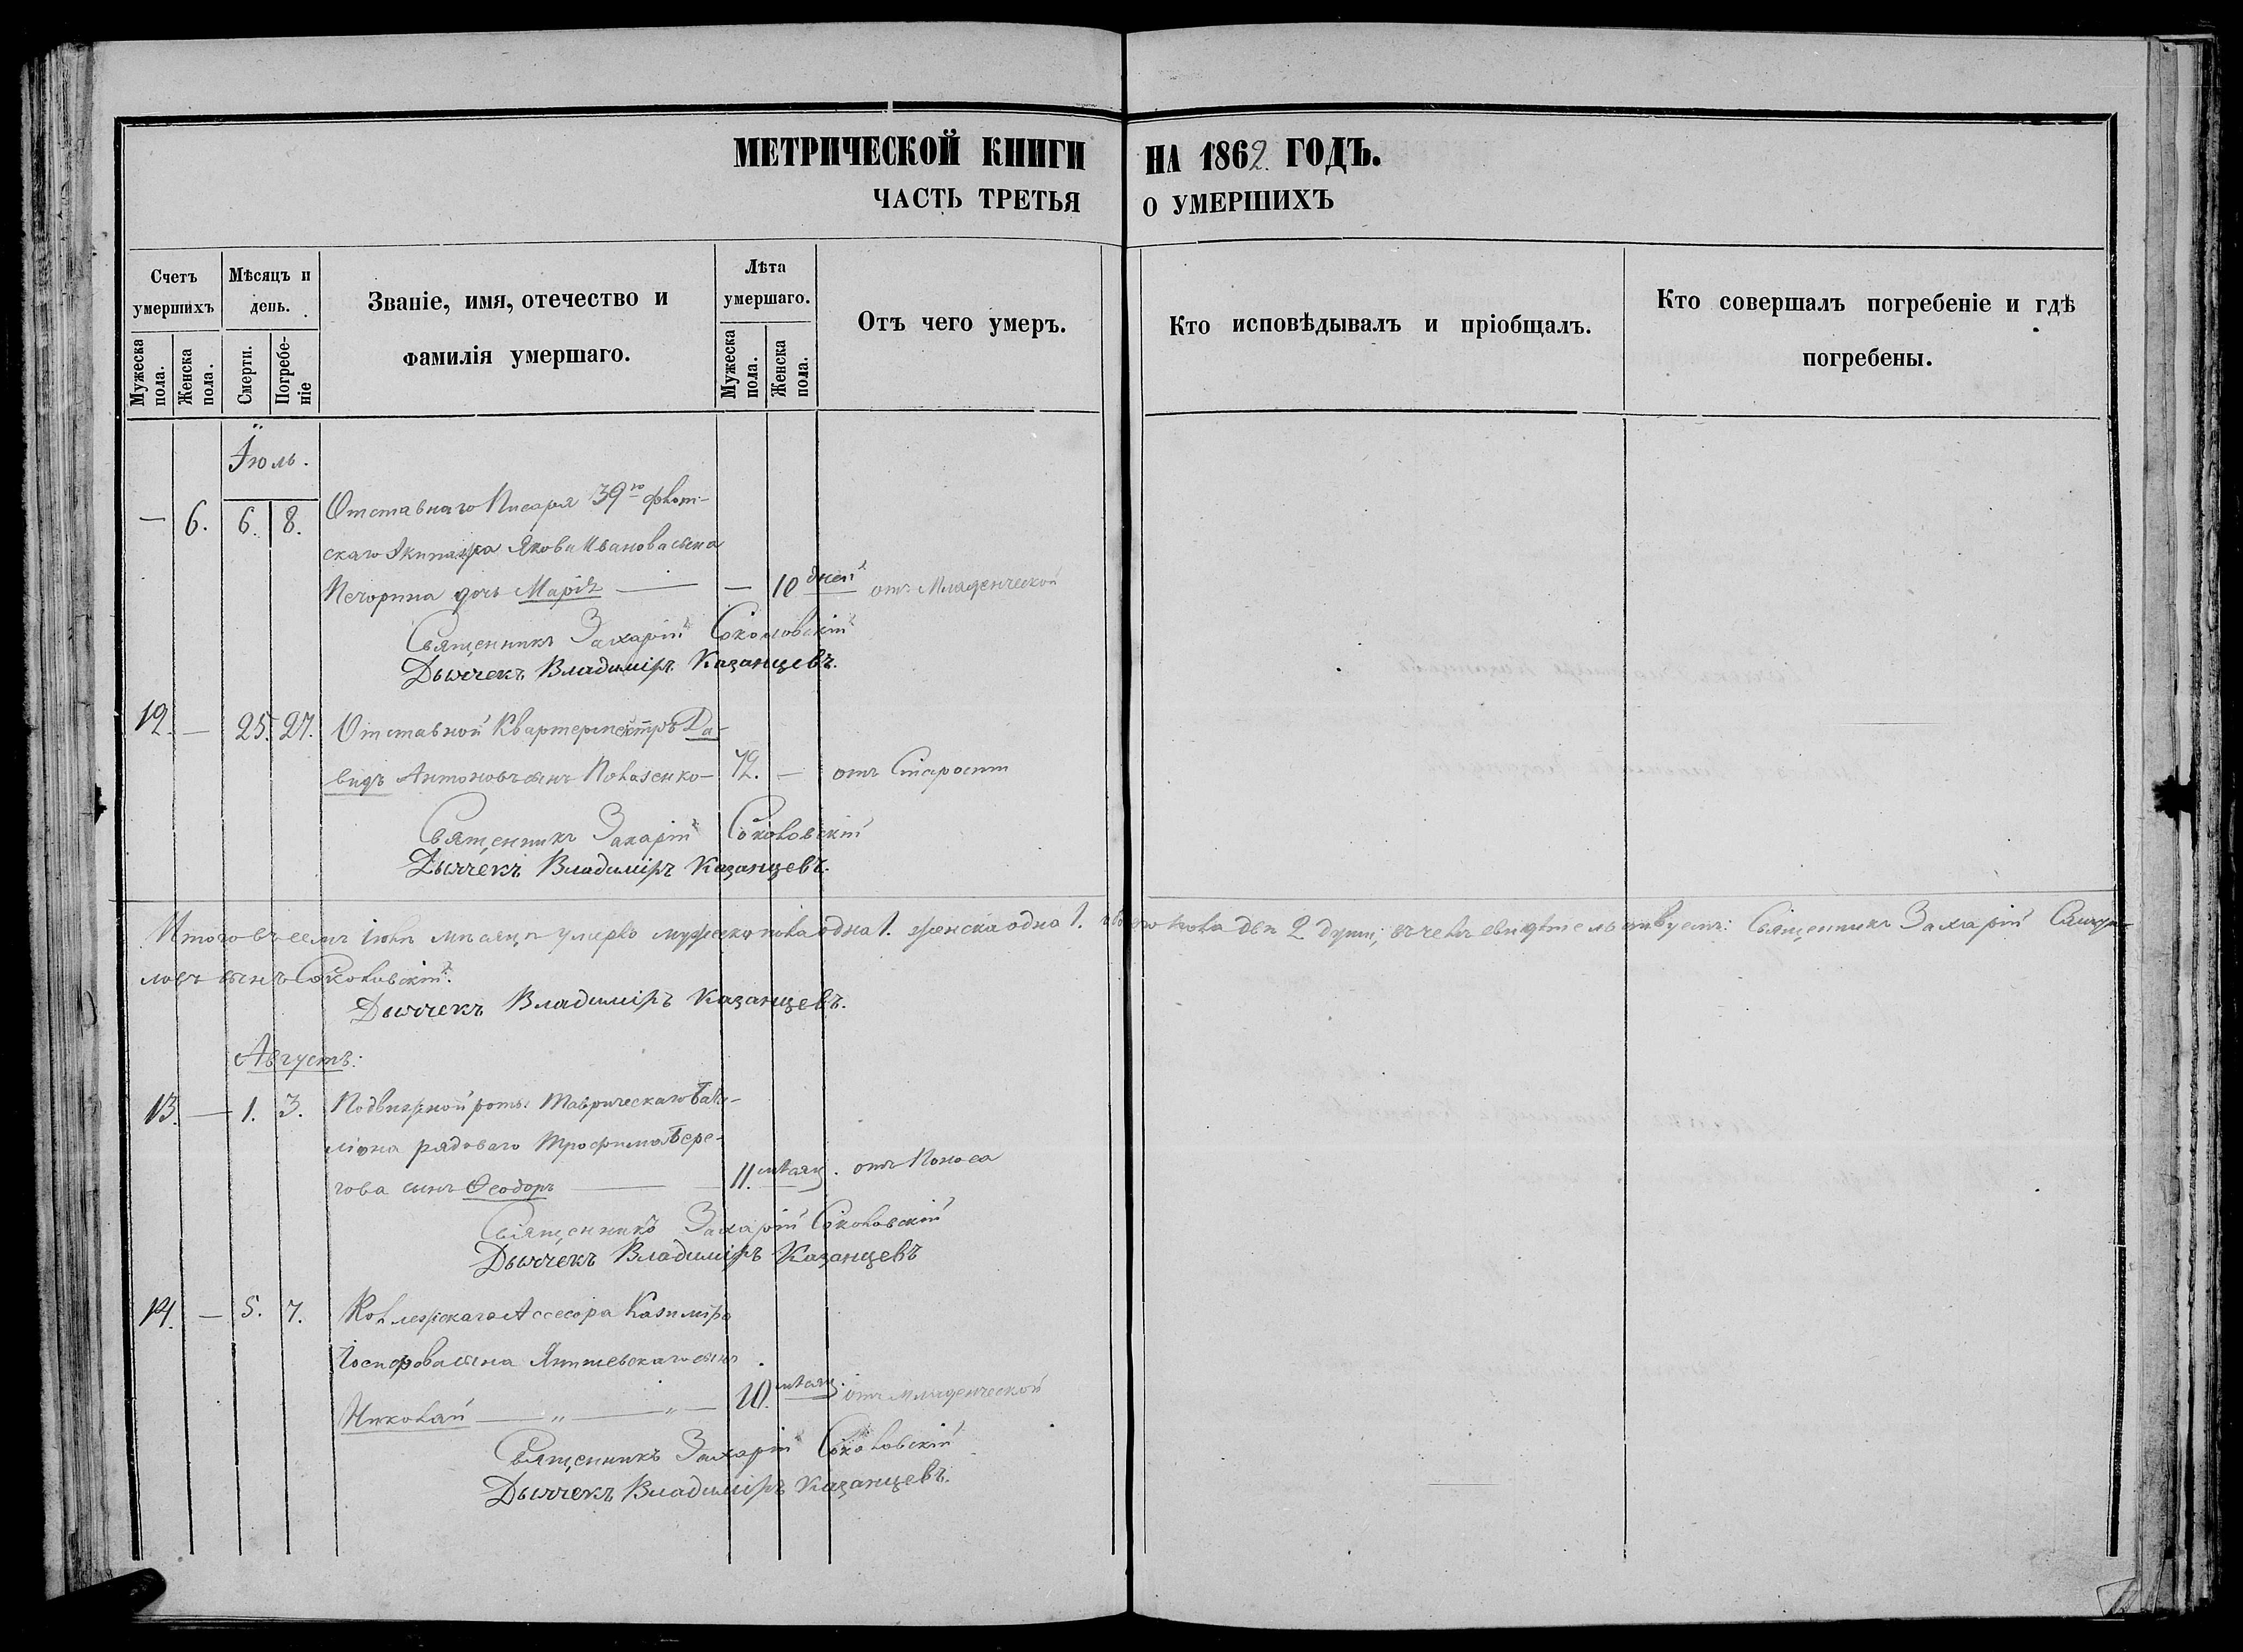 МЕТРИЧЕСКОЙ КНИГИ НА 1862 ГОДЪ.
ЧАСТЬ ТРЕТЬЯ О УМЕРШИХЪ
Счетъ умершихъ
Мужеска пола.
Женска пола.
Мѣсяцъ и день.
Смерти.
Погребе-
ніе
Званіе, имя, отечество и
фамилія умершаго.
Лѣта умершаго.
Мужеска пола.
Женска пола.
Отъ чего умеръ.
Кто исповѣдывалъ и пріобщалъ.
Кто совершалъ погребеніе и гдѣ
погребены.
Іюль.
— 6. 6. 8. Отставнаго Писаря 39го флот-
скаго Экипажа Якова Иванова сына
Печорина дочь Марія — — 10 дней отъ Младенческой
Священникъ Захарій Соколовскій
Дьячекъ Владиміръ Казанцевъ.
12. — 25. 27. Отставной Квартермейстръ Да-
видъ Антоновъ сынъ 72. — отъ Старости
Священникъ Захарій Соколовскій
Дьячекъ Владиміръ Казанцевъ.
Итого въ семъ Іюлѣ мѣсяцѣ умерло мужеска пола одна 1. женска одна 1. обоего пола двѣ 2 души; въ чемъ свидѣтельствуемъ: Священникъ Захарій Самуи-
ловъ сынъ Соколовскій.
Дьячекъ Владиміръ Казанцевъ.
Августъ:
13. — 1. 3. Подвижной роты Таврическаго Бата-
ліона рядоваго Трофима Бере-
гова сынъ Ѳеодоръ — — 11. мѣсяц. отъ Поноса
Священникъ Захарій Соколовскій
Дьячекъ Владиміръ Казанцевъ
14. — 5. 7. Коллежскаго Ассесора Казиміра
Іосифова сына сынъ
Николай — " — " — 10. мѣсяц. отъ Младенческой
Священникъ Захарій Соколовскій
Дьячекъ Владиміръ Казанцевъ.